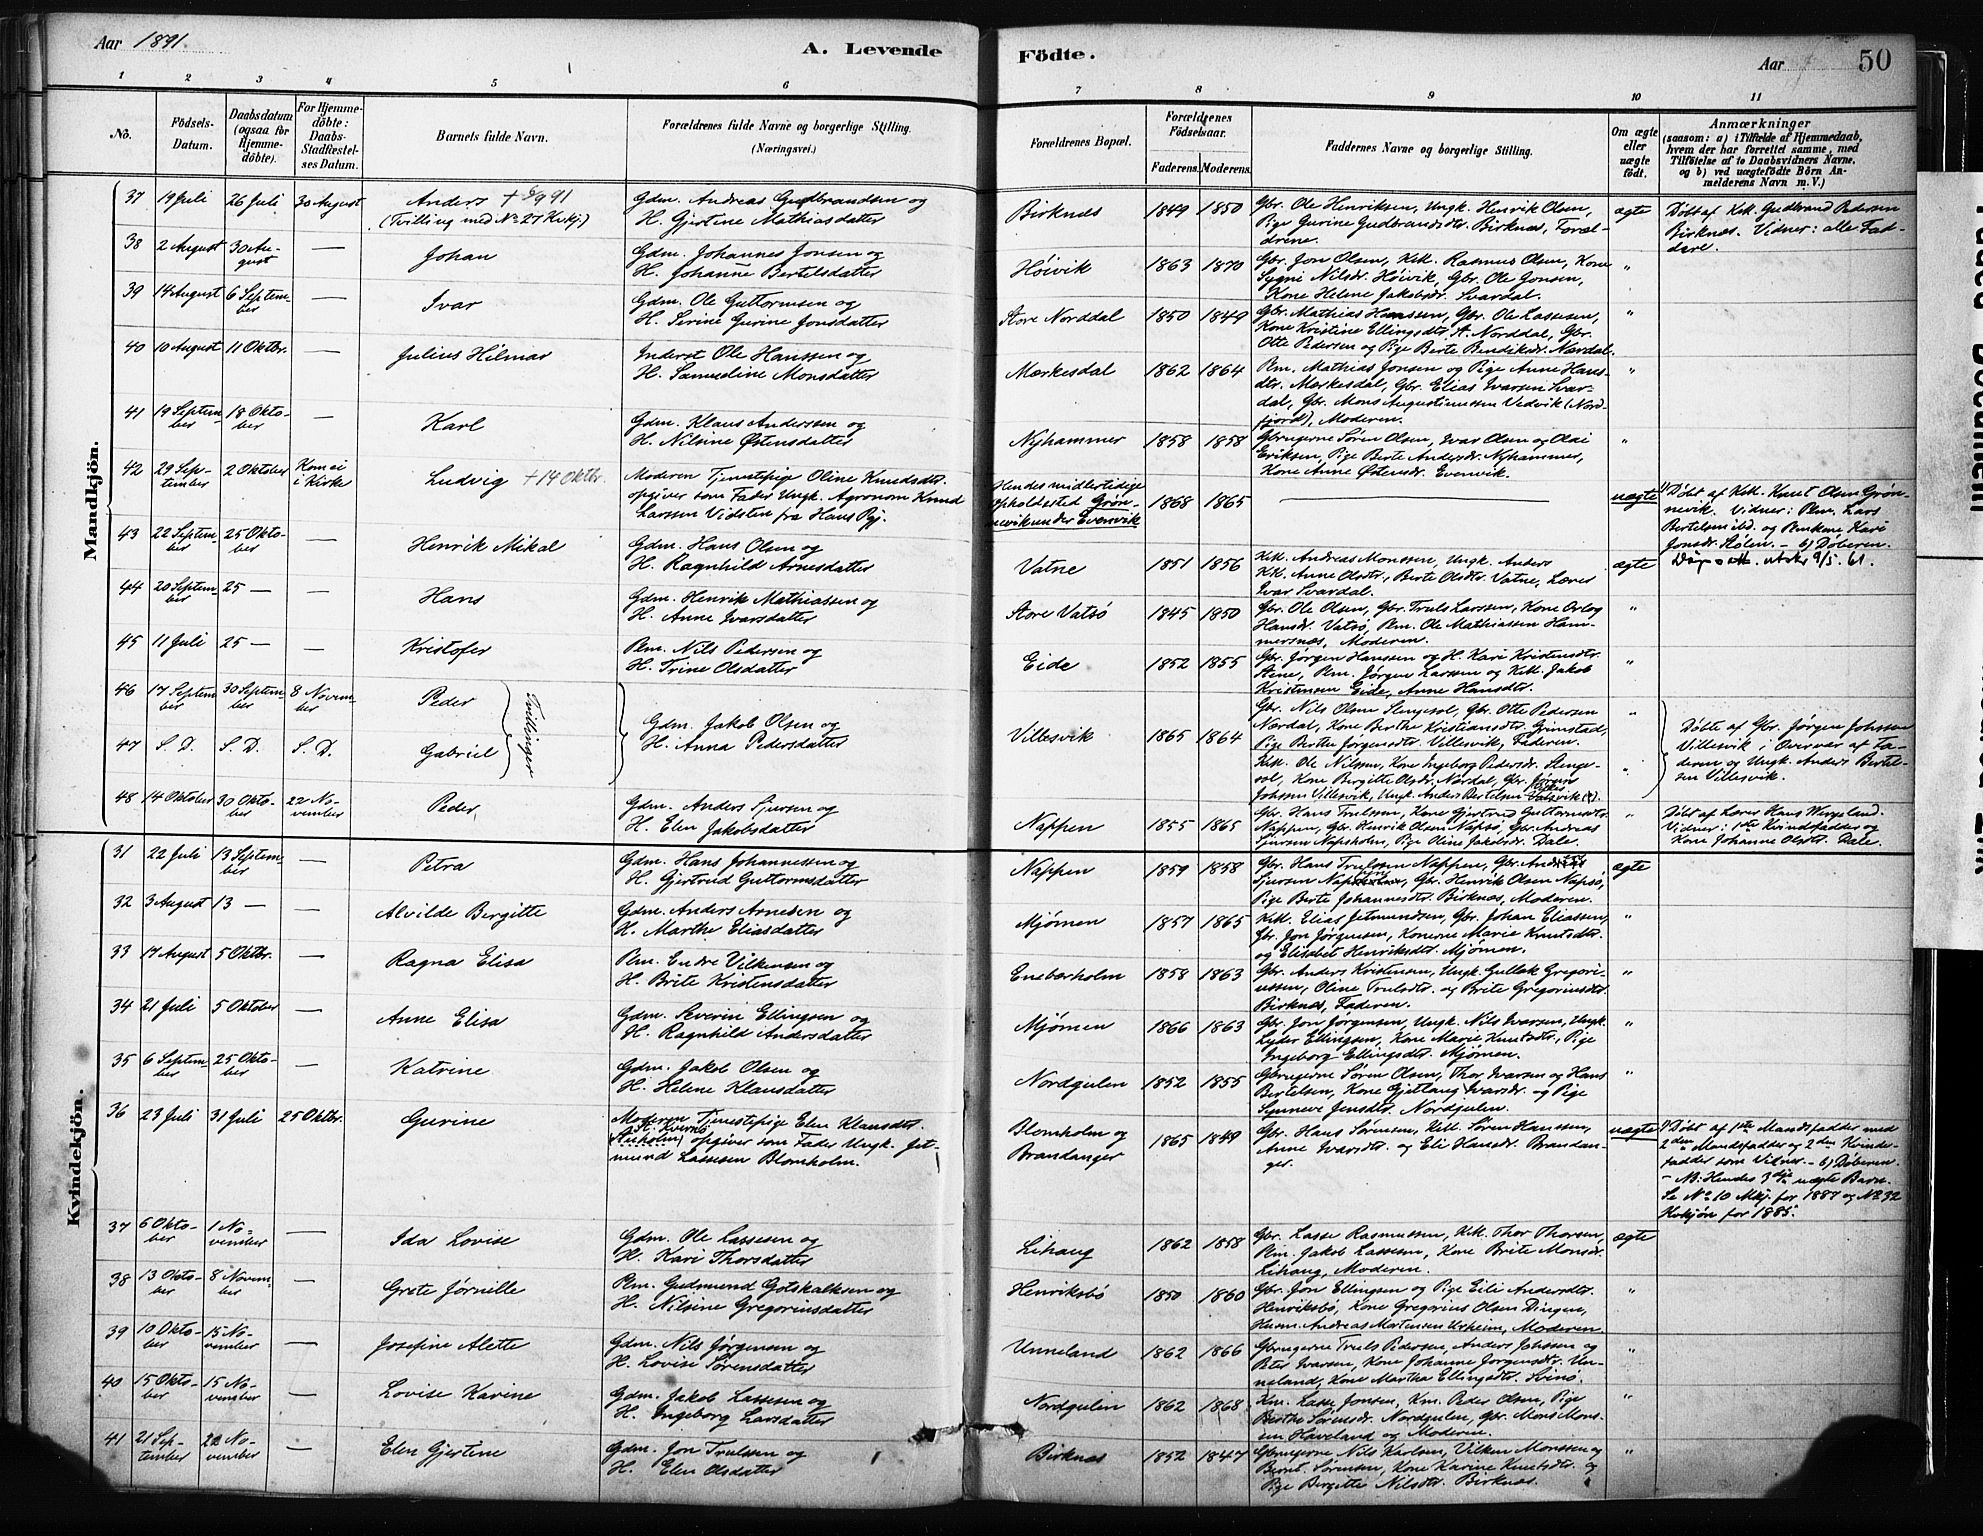 Aar 1891.
A. Levende
Födte.
Aar
50
1 2 3 4 5 6 7 8 9 10 11
No.
Födsels-Datum.
Daabsdatum (ogsaa for Hjemmedöbte).
For Hjemmedöbte: Daabs-Stadfæstelses Datum.
Barnets fulde Navn.
Forældrenes fulde Navne og borgerlige Stilling.
(Næringsvei.)
Forældrenes Bopæl.
Forældrenes Födselsaar.
Faderens. Moderens.
Faddernes Navne og borgerlige Stilling.
Om ægte eller uægte födt.
Anmærkninger
(saasom: a) i Tilfælde af Hjemmedaab, hvem der har forrettet samme, med Tilföielse af to Daabsvidners Navne, og b) ved uægtefödte Börn Anmelderens Navn m. V.)
Mandkjön.
37 19 Juli 26 Juli 30 August Anders
(Tvilling med No 27 Kvkj.)
Gdm. Andreas Gudbrandsen og
H. Gjertine Mathiasdatter
Birknes 1849 1850
Gbr. Ole Henriksen, Ungk. Henrik Olsen,
Pige Gurine Gudbrandsdtr. Birknæs, Foræl-
drene.
ægte
Döbt af Kkk. Gudbrand Pedersen
Birknæs. Vidner: alle Fad-
dere.
38 2 August 30 Au-
gust
— Johan
Gdm. Johannes Jonsen og
H. Johanne Bertelsdatter
Höivik 1863 1870
Gbr. Jon Olsen, Kkk. Rasmus Olsen, Kone
Sygni Nilsdr. Höivik, Gbr. Ole Jonsen,
Kone Helene Jakobsdr. Svardal.
"
39 14 August 6 Septem-
ber
— Ivar
Gdm. Ole Guttormsen og
H. Serine Gurine Jonsdatter
Store Norddal 1850 1849
Gbr. Mathias Hanssen, Gbr. Ole Lassesen,
Kone Kristine Ellingsdtr. St. Norddal, Gbr.
Otte Pedersen og Pige Berte Bendiksdr. Nordal.
"
40 10 August 11 Oktbr. — Julius Hilmar
Inderst Ole Hanssen og
H. Samueline Monsdatter
Mærkesdal 1862 1864
Plm. Mathias Jonsen og Pige Anne Hans-
dtr. Mærkesdal, Gbr. Elias Ivarsen Svar-
dal, Gbr. Mons Augustinussen Vedvik (Nord-
fjord), Moderen.
"
41 19 Septem-
ber
18 Okto-
ber
— Karl
Gdm. Klaus Anderssen og
H. Nilsine Östensdatter
Nyhammer 1858 1858
Gbrugerne Sören Olsen, Ivar Olsen og Olai
Eriksen, Pige Berte Andersdr. Nyhammer,
Kone Anne Östensdr. Evenvik.
"
42 29 Sep-
tember
2 Oktober Kom ei
i Kirke
Ludvig + 14 Oktbr.
Moderen Tjenestepige Oline Knudsdtr.
opgiver som Fader Ungk. Agronom Knud
Larssen Vidsten fra Hans Pgj.
Hendes midlertidige
opholdssted Grön-
nevik under Evenvik
1868 1865
uægte
Döbt af Kkk. Knut Olsen Grön-
nevik. Vidner: Plm. Lars
Bertelsen ibd. og Enkene Kari
Jonsdr. Hölen. – b) Döberen.
43 22 Septem-
ber
25 Okto-
ber
— Henrik Mikal
Gdm. Hans Olsen og
H. Ragnhild Arnesdatter
Vatne 1851 1856
Kkk. Andreas Monssen, Ungk. Anders
Kkk. Anne Olsdtr., Berte Olsdtr. Vatne, Lærer
Ivar Svardal.
ægte
44 20 Septem-
ber
25 — — Hans
Gdm. Henrik Mathiassen og
H. Anne Ivarsdatter
Store Vatsö 1845 1850
Gbr. Ole Olsen, Gbr. Truls Larssen, Kone Orlog
Hansdr. Vatsö, Plm. Ole Mathiassen Ham-
mersnæs, Moderen.
"
45 11 Juli 25 — — Kristofer
Plm. Nils Pedersen og
H. Trine Olsdatter
Eide 1852 1855
Gbr. Jörgen Hanssen og H. Kari Kristensdtr.
Stene, Plm. Jörgen Larssen og Kkk. Jakob
Kristensen Eide, Anne Hansdtr.
"
46 17 Septem-
ber
30 Septem-
ber
8 Novem-
ber
Peder
Tvillinger
Gdm. Jakob Olsen og
H. Anna Pedersdatter
Villesvik 1865 1864
Gbr. Nils Olsen Slengesol, Gbr. Otte Pedersen
Nordal, Kone Berthe Kristiansdtr. Grimstad,
Pige Berthe Jörgensdtr. Villesvik, Faderen.
"
47 S. D. S. D. S. D. Gabriel
Kkk. Ole Nilssen, Kone Ingeborg Pedersdr. Slenge-
sol, Kone Birgitte Olsdr. Nordal, Gbr. Jörgen
Johssen Villesvik, Ungk. Anders Bertelsen
"
Döbte af Gbr. Jörgen Johssen
Villesvik i Overvær af Fa-
deren og Ungk. Anders Bertel-
sen Villesvik.
48 14 Oktober 30 Okto-
ber
22 No-
vember
Peder
Gdm. Anders Sjursen og
H. Elen Jakobsdatter
Nappen 1855 1865
Gbr. Hans Trulssen, Kone Gjertrud Guttormsdtr.
Nappen, Gbr. Henrik Olsen Napsö, Gbr. Andreas
Sjursen Napsholm, Pige Oline Jakobsdr. Dale.
"
Döbt af Lærer Hans Wergeland.
Vidner: 1ste Kvindfadder og
Kone Johanne Olsdtr. Dale
Kvindekjön.
31 22 Juli 13 Septem-
ber
— Petra
Gdm. Hans Johannessen og
H. Gjertrud Guttormsdatter
Nappen 1859 1858
Gbr. Hans Trulssen Nappen, Gbr. Andreas
Sjursen, Gbr. Henrik Olsen Napsö,
Pige Berte Johannesdtr. Birknæs, Moderen.
ægte
32 3 August 13 — — Alvilde Bergitte
Gdm. Anders Arnesen og
H. Marthe Eliasdatter
Mjömen 1857 1865
Kkk. Elias Jetmundsen, Gbr. Johan Eliassen,
Gbr. Jon Jörgensen, Konerne Marie Knutsdtr.
og Elisabet Henriksdtr. Mjömen.
"
33 17 August 5 Oktbr. — Ragna Elisa
Plm. Endre Vilkensen og
H. Brite Kristensdatter
Enebærholm 1858 1863
Gbr. Anders Kristensen, Ungk. Gullak Gregori-
ussen, Oline Trulsdtr. og Brite Gregoriusdtr.
Birknæs, Faderen.
"
34 21 Juli 5 Oktober — Anne Elisa
Gdm. Severin Ellingsen og
H. Ragnhild Andersdatter
Mjömen 1866 1863
Gbr. Jon Jörgensen, Ungk. Nils Ivarsen, Ungk.
Lyder Ellingsen, Kone Marie Knutsdtr., Pige
Ingeborg Ellingsdtr. Mjömen.
"
35 6 Septem-
ber
25 Okto-
ber
— Katrine
Gdm. Jakob Olsen og
H. Helene Klausdatter
Nordgulen 1852 1855
Gbrugerne Sören Olsen, Thor Ivarsen og Hans
Bertelsen, Kone Gjetlaug Ivarsdr. og Pige
Synneve Jensdtr. Nordgulen.
"
36 23 Juli 31 Juli 25 Oktbr. Gurine
Moderen Tjenestepige Elen Klausdtr.
opgiver som Fader Ungk. Jet-
mund Lassesen Blomholm.
Blomholm og
Brandanger
1865 1849
Gbr. Hans Sörensen, Kkk. Sören Hanssen,
Anne Ivarsdtr. og Eli Hansdr. Brandan-
ger.
uægte
Döbt af 1ste Mandsfadder med
2den Mandsfadder og 2den Kvinde-
fadder som Vidner. – b) Döberen.
– NB: Hendes 3dje uægte Barn.
Se No 10 Mkj. for 1887 og No 32
Kvkjön for 1885.
37 6 Okto-
ber
1 No-
vember
— Ida Lovise
Gdm. Ole Lassesen og
H. Kari Thorsdatter
Lihaug 1862 1858
Gbr. Lasse Rasmussen, Kkk. Thor Thorsen,
Plm. Jakob Lassesen, Kone Brite Monsdr.
Lihaug, Moderen.
ægte
38 13 Okto-
ber
8 Novem-
ber
— Grete Jörnille
Plm. Gudmund Gotskalksen og
H. Nilsine Gregoriusdatter
Henriksbö 1850 1860
Gbr. Jon Ellingsen og Pige Eili Andersdtr.
Henriksbö, Kone Gregorius Olsen Dingen,
Husm. Andreas Mortensen, Moderen.
"
39 10 Okto-
ber
15 No-
vember
— Josefine Alette
Gdm. Nils Jörgensen og
H. Lovise Sörensdatter
Unneland 1862 1866
Gbrugerne Truls Pedersen, Anders Johssen og
Peter Ivarsen, Kone Johanne Jörgensdtr. Un-
neland, Kone Martha Ellingsdtr. Svinö.
"
40 15 Okto-
ber
15 No-
vember
— Lovise Karine
Gdm. Jakob Lassesen og
H. Ingeborg Larsdatter
Nordgulen 1862 1868
Km. Lasse Jonsen, Km. Peder Olsen, Pige
Berthe Sörensdr. Nordgulen, Gbr. Mons Mons-
sen Haveland og Moderen.
"
41 21 Sep-
tember
22 No-
vember
— Elen Gjertine
Gdm. Jon Trulssen og
H. Elen Olsdatter
Birknæs 1852 1847
Gbrugerne Nils Karlsen, Vilken Monssen og
Bernt Sörensen, Kone Karine Knutsdtr. og
Pige Birgitte Nilsdtr. Birknæs.
"